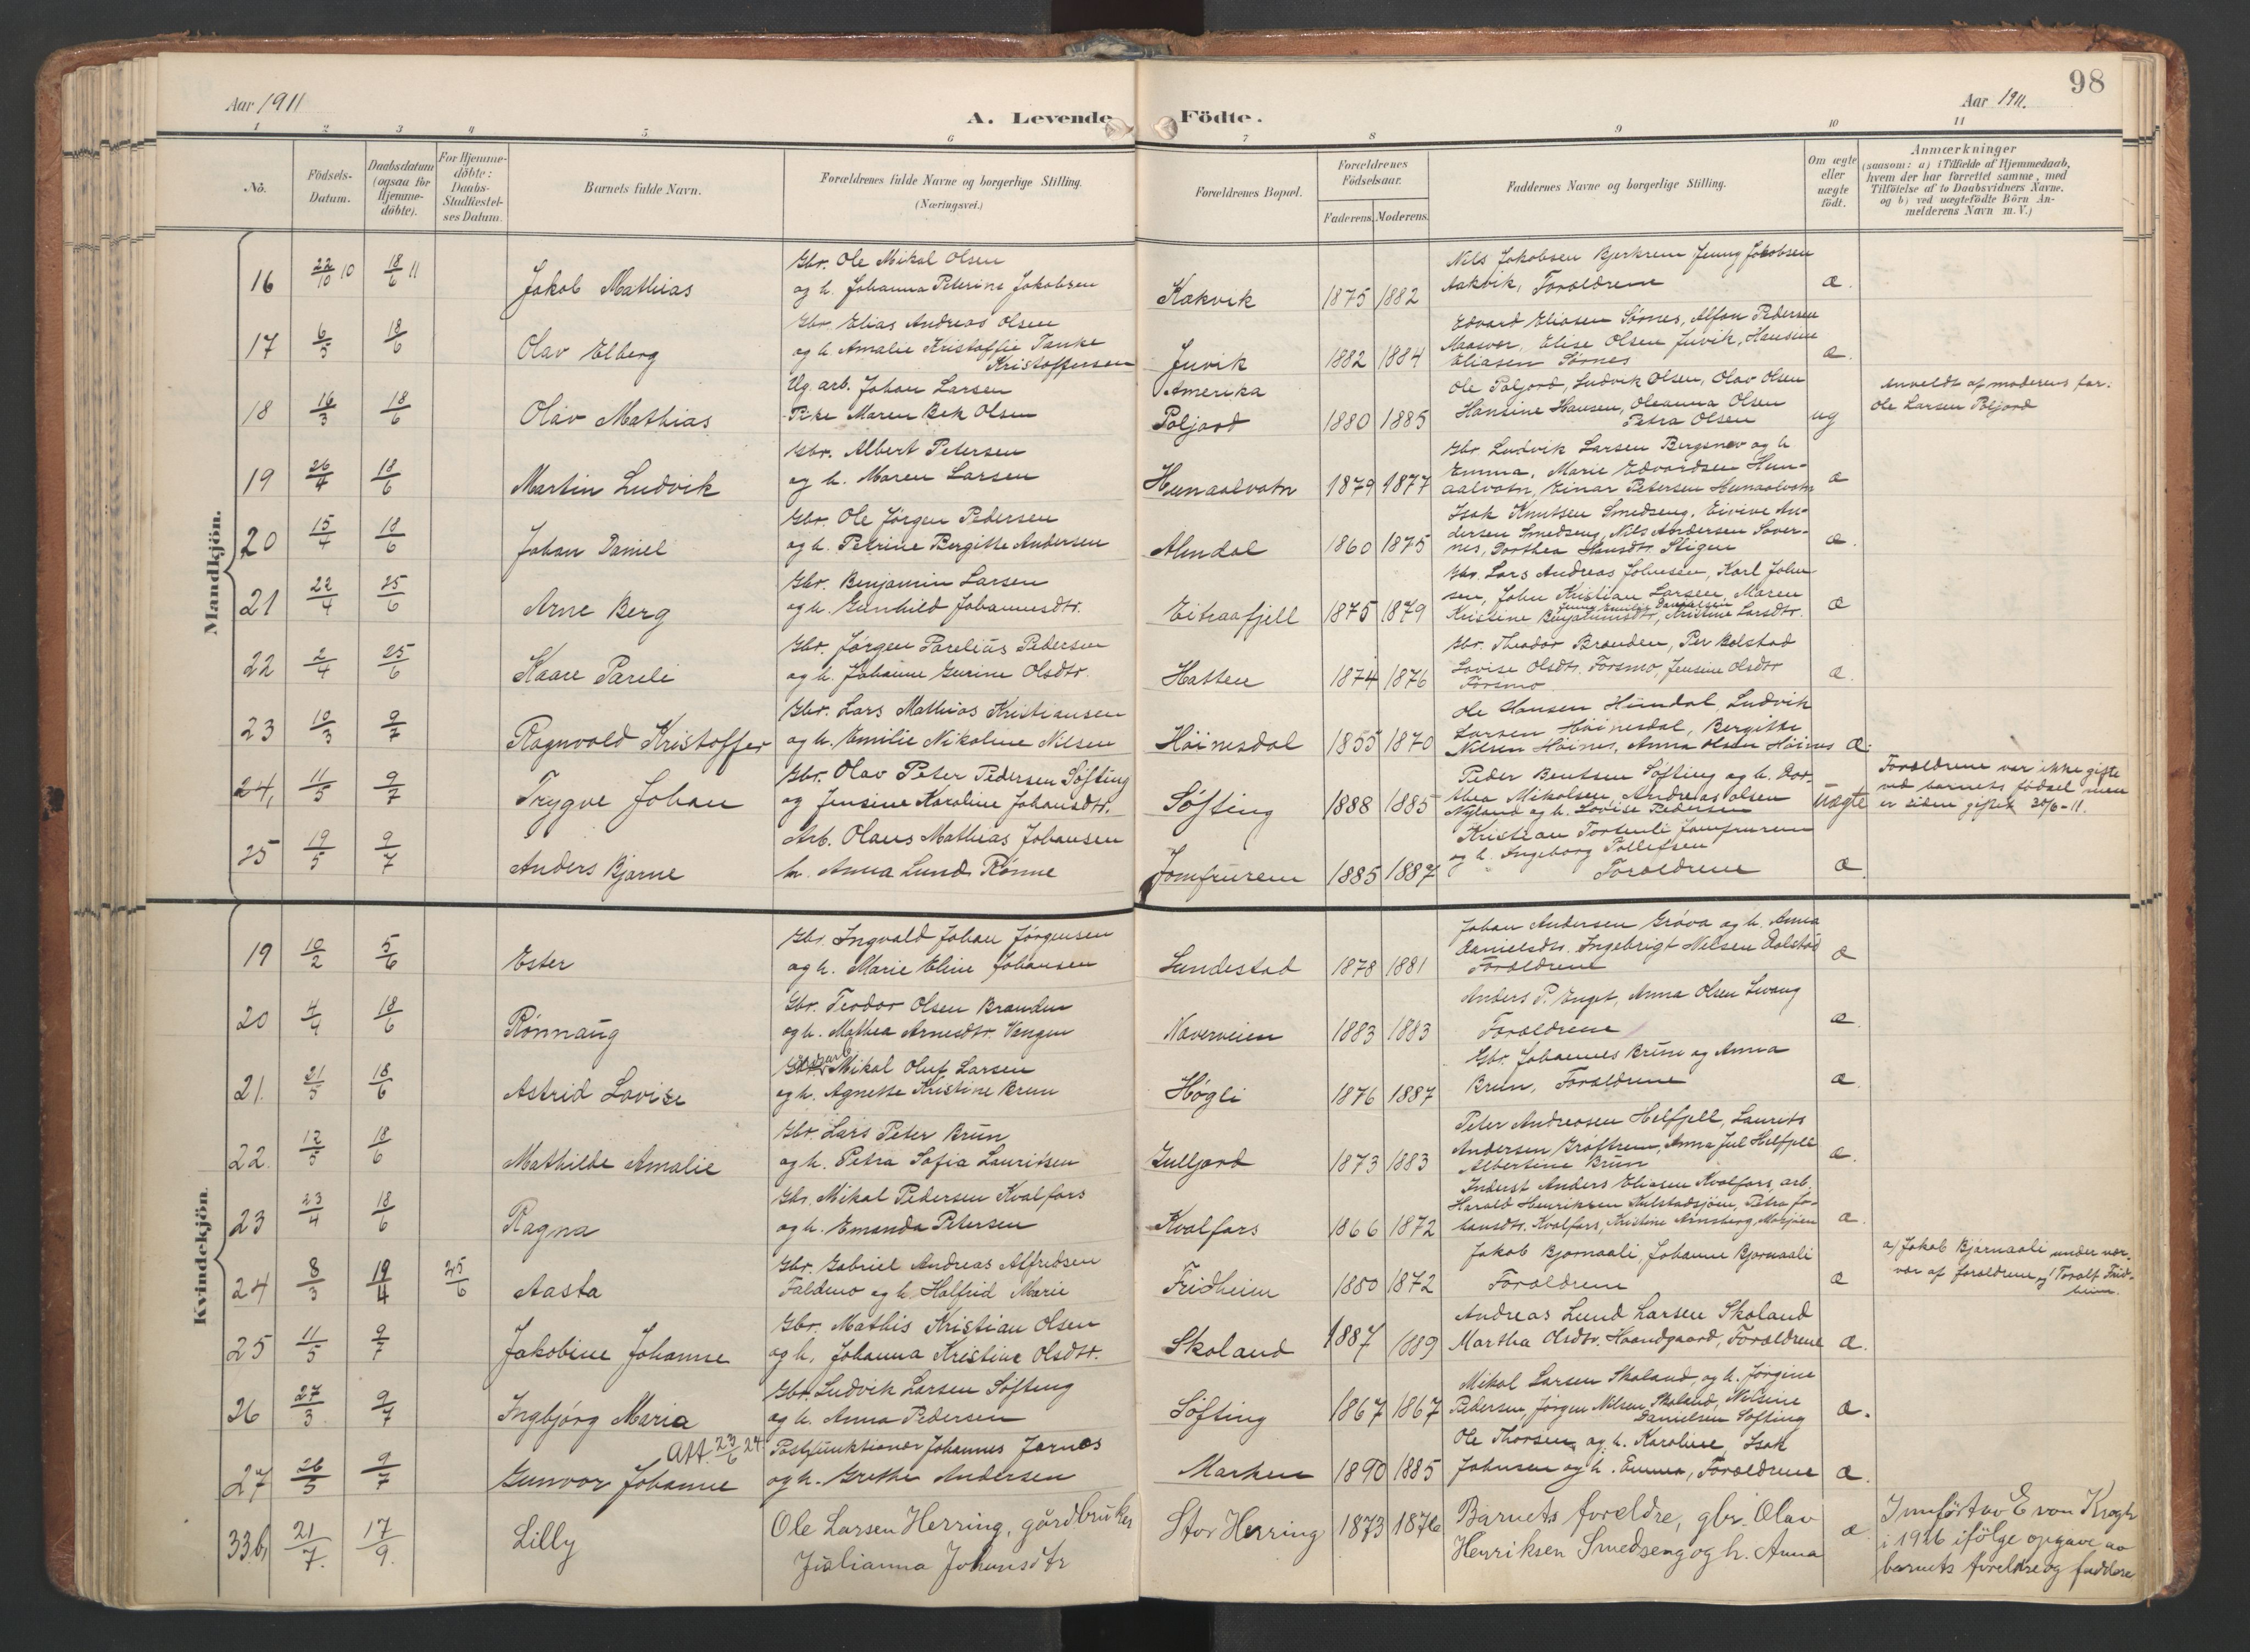 Aar 1911
A. Levende Födte.
Aar 1911.
98
1 2 3 4 5 6 7 8 9 10 11
No.
Födsels-Datum.
Daabsdatum (ogsaa for Hjemme-döbte).
For Hjemme-döbte: Daabs-Stadfæstel-ses Datum.
Barnets fulde Navn.
Forældrenes fulde Navne og borgerlige Stilling.
(Næringsvei.)
Forældrenes Bopæl.
Forældrenes Födselsaar.
Faderens. Moderens.
Faddernes Navne og borgerlige Stilling.
Om ægte eller uægte födt.
Anmærkninger
(saasom: a) i Tilfælde af Hjemmedaab,
hvem der har forrettet samme, med
Tilföielse af to Daabsvidners Navne.
og b) ved uægtefödte Börn An-
melderens Navn m. V.)
Mandkjön.
16 22/10 10 18/6 11 Jakob Mathias
Gbr. Ole Mikal Olsen
og h. Johanna Peterine Jakobsen
Kakvik 1875 1882
Nils Jakobsen Bjerkrem Jenny Jakobsen
Aakvik, Forældrene
æ.
17 6/5 18/6 Olav Elberg
Gbr. Elias Andreas Olsen
og h. Amalie Kristoffie Tanke
Kristoffersen
Juvik 1882 1884
Edvard Eliasen Sörnes, Alfon Pedersen
Maasvær, Elise Olsen Juvik, Hansine
Eliasen Sörnes
æ.
18 16/3 18/6 Olav Mathias
Ug. arb. Johan Larsen
Pike Maren Bek Olsen
Amerika
Poljord 1880 1885
Ole Poljord, Ludvik Olsen, Olav Olsen
Hansine Hansen, Oleanna Olsen
Petra Olsen
ug
Anmeldt af moderens far.
Ole Larsen Poljord
19 26/4 18/6 Martin Ludvik
Gbr. Albert Petersen
og h. Maren Larsen
Hunaalvatn 1879 1877
Gbr. Ludvik Larsen Bergsnev og h
Emma, Marie Edvardsen Hun-
aalvatn, Einar Petersen Hunaalvatn
æ
20 15/4 18/6 Johan Daniel
Gbr. Ole Jörgen Pedersen
og h. Petrine Bergitte Andersen
Almdal 1860 1875
Isak Knutsen Smedseng, Eivine An-
dersen Smedseng, Nils Andersen Sover-
nes, Dorthea Hansdtr. Stigen
æ.
21 22/4 25/6 Arne Berg
Gbr. Benjamin Larsen
og h. Gunhild Johannesdtr.
Eitraafjell 1875 1879
Gbr. Lars Andreas Johnsen, Karl John-
sen, John Kristian Larsen, Maren
Jenny Emilie Danielsen
Kristine Benjaminsdtr, Kristine Larsdtr.
æ
22 2/4 25/6 Kaare Pareli
Gbr. Jörgen Parelius Pedersen
og h. Johanne Gurine Olsdtr.
Hatten 1874 1876
Gbr. Theodor Branden, Per Bolstad
Lovise Olsdtr. Forsmo, Jensine Olsdtr
Forsmo
æ.
23 10/3 9/7 Ragnvald Kristoffer
Gbr. Lars Mathias Kristiansen
og h. Emilie Nikoline Nilsen
Höinesdal 1855 1870
Ole Hansen Hundal, Ludvik
Larsen Höinesdal, Bergitte
Nilsen Höines, Anna Olsen Höines
æ.
24, 11/5 9/7 Trygve Johan
Gbr. Olav Peter Pedersen Söfting
og Jensine Karoline Johansdtr.
Söfting 1888 1885
Peder Bentsen Söfting og h. Dor-
thea Mikalsen, Andreas Olsen
Nyland og h. Lovise Pedersen
Uægte
Forældrene var ikke gifte
ved barnets födsel men
er siden giftet 30/6-11.
25 19/5 9/7 Anders Bjarne
Arb. Olaus Mathias Johansen
h. Anna Lund Rönne
Jomfrurem 1885 1887
Kristian Tortenli Jomfrurem
og h. Ingeborg Tollefsen
Forældrene
æ.
Kvindekjön.
19 10/2 5/6 Ester
Gbr. Ingvald Johan Jörgensen
og h. Marie Eline Johansen
Lundestad 1878 1881
Johan Andersen Gröva og h. Anna
Danielsdtr. Ingebrigt Nilsen Dolstad
Forældrene
æ
20 4/4 18/6 Rönnaug
Gbr. Teodor Olsen Branden
og h. Mathea Arnesdtr. Vangen
Naverveien 1883 1883
Anders P. Enget, Anna Olsen Lwang
Forældrene
æ.
21. 21/5 18/6 Astrid Lovise
Mikal Oluf Larsen
og h. Agnette Kristine Brun
Högli 1876 1887
Gbr. Johannes Brun og Anna
Brun, Forældrene
æ.
22. 12/5 18/6 Mathilde Amalie
Gbr. Lars Peter Brun
og h. Petra Sofia Lauritsen
Zulljord 1873 1883
Peter Andreasen Helfjell, Laurits
Andersen Gröftrem, Anna Jul Helfjell
Albertine Brun
æ.
23 23/4 18/6 Ragna
Gbr. Mikal Pedersen Kvalfors
og h. Emanda Petersen
Kvalfors 1866 1872
Inderst Anders Eliasen Kvalfors, arb.
Harald Henriksen Kulstadsjöen, Petra Jo-
hansdtr. Kvalfors, Kristine Arnsberg, Mosjöen
æ.
24 8/3 19/4 25/6 Aasta
Gbr. Gabriel Andreas Alfredsen
Faldmo og h. Halfrid Marie
Fridheim 1880 1872
Jakob Bjornaali, Johanne Bjornaali
Forældrene
æ
a) Jakob Bjørnaali under nær-
vær af forældrene og Toralf Frid-
heim.
25 11/5 9/7 Jakobine Johanne
Gbr. Mathis Kristian Olsen
og h. Johanna Kristine Olsdtr.
Skoland 1887 1889
Andreas Lund Larsen Skoland
Martha Olsdtr. Haandgaard, Forældrene
æ.
26 27/3 9/7 Ingbjörg Maria
Gbr. Ludvik Larsen Söfting
og h. Anna Pedersen
Söfting 1867 1867
Mikal Larsen Skoland, og h. Jörgine
Pedersen, Jörgen Nilsen Skoland, Nilsine
Danielsen Söfting
æ.
27 26/5 9/7 Gunvor Johanne
Att. 23/6 24
Postfunktionær Johannes Jarnæs
og h. Grethe Andersen
Marken 1890 1885
Ole Thorsen og h. Karoline, Isak
Johnsen og h. Emma, Forældrene
æ.
33b, 21/7. 17/9. Lilly
Ole Larsen Herring, gårdbruker
Julianna Johansdtr
Stor Herring 1873 1876
Barnets foreldre, gbr. Olav
Henriksen Smedseng og h. Anna
æ
Innført av E von Krogh
i 1926 ifölge opgave av
barnets foreldre og faddere